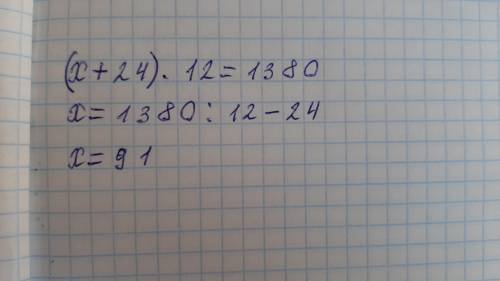 (x+24)· 12=1380
x=1380:12-24
x=91